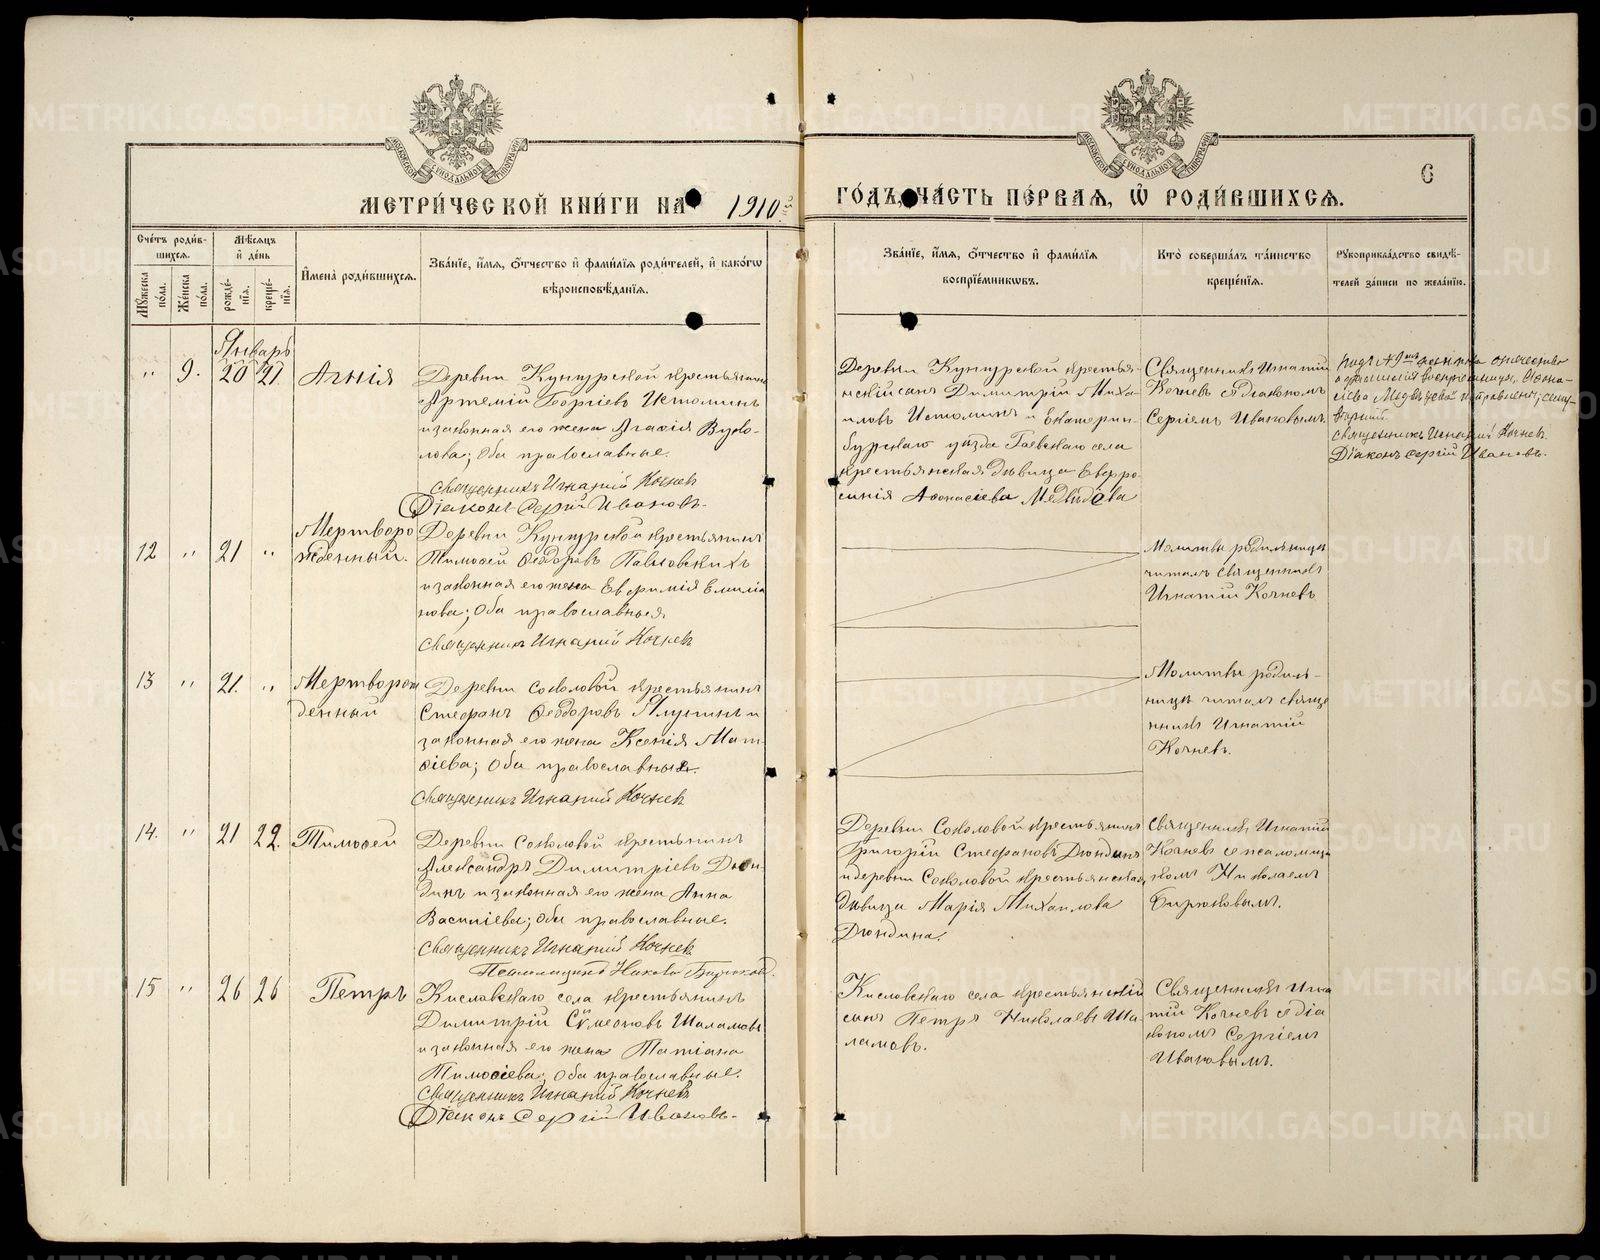 МЕТРИ́ЧЕСКОЙ КНИ́ГИ НА 1910й
ГО́ДЪ, ЧА́СТЬ ПЕ́РВАЯ, Ѡ҆ РОДИ́ВШИХСЯ.
6
Сче́тъ роди́вшихся.
Мꙋ́жеска по́ла.
Же́нска по́ла.
Мѣ́сяцъ и҆ де́нь
рожде́нїя.
креще́нїя.
И҆мена̀ роди́вшихся.
Зва́нїе, и҆́мя, ѻ҆́тчество и҆ фами́лїя роди́телей, и҆ како́гѡ
вѣроисповѣ́данїя.
Зва́нїе, и҆́мя, ѻ҆́тчество и҆ фами́лїя
воспрїе́мникѡвъ.
Кто̀ соверша́лъ та́инство
креще́нїя.
Рꙋкоприкла́дство свидѣ́-
телей за́писи по жела́нїю.
Январь
" 9. 20 21 Агнія
Деревни Кунгурской крестьянинъ
Артемій Георгіевъ Истоминъ
и законная его жена Агафія Вуко-
лова; оба православные.
Священникъ Игнатій Кочневъ
Діаконъ Сергій Ивановъ.
Деревни Кунгурской крестьян-
нскій сынъ Димитрій Миха-
иловъ Истоминъ и Екатерин-
бургскаго уѣзда Гаевскаго села
крестьянская дѣвица Евфро-
синія Афонасіева Медвѣдева
Священникъ Игнатій
Кочневъ с діакономъ
Сергіемъ Ивановымъ.
Священникъ Игнатій Кочневъ.
Діаконъ Сергій Ивановъ.
12 " 21 " Мертворо
жденный.
Деревни Кунгурской крестьянинъ
Тимоѳей Ѳеодоровъ Павловскихъ
и законная его жена Евфимія Емиліа
нова; оба православныя
Священникъ Игнатій Кочневъ
Молитвы родильницѣ
читалъ священникъ
Игнатій Кочневъ
13 " 21. " Мертворож
денный
Деревни Соколовой крестьянинъ
Стефанъ Ѳеодоровъ и
законная его жена Ксенія Мат-
ѳіева; оба православныя.
Священникъ Игнатій Кочневъ
Молитвы родиль-
ницѣ читалъ свяще
нникъ Игнатій
Кочневъ.
14. " 21 22. Тимоѳей
Деревни Соколовой крестьянинъ
Александръ Димитріевъ Дюн-
динъ и законная его жена Анна
Василіева; оба православные.
Священникъ Игнатій Кочневъ
Псаломщикъ Николай Бирюковъ.
Деревни Соколовой крестьянинъ
Григорій Стефановъ Дюндинъ
и деревни Соколовой крестьянская
дѣвица Марія Михаилова
Дюндина.
Священникъ Игнатій
Кочневъ с псаломщи
комъ Николаемъ
Бирюковымъ.
15 " 26 26 Петръ
Кисловскаго села крестьянинъ
Димитрій Сѵмеоновъ Шаламовъ
и законная его жена Татіана
Тимоѳіева; оба православные.
Священникъ Игнатій Кочневъ
Діаконъ Сергій Ивановъ.
Кисловскаго села крестьянскій
сынъ Петръ Николаевъ Ша
ламовъ.
Священникъ Игна
тій Кочневъ с діа
кономъ Сергіемъ
Ивановымъ.
METRIKI.GASO-URAL.RU